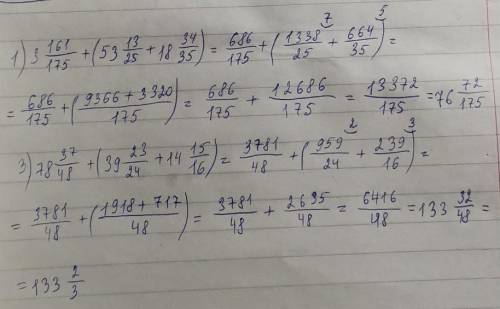 7 5
1) 3 161/175 + (53 13/25 + 18 34/35) = 686/175 + (1338/25 + 664/35) =
= 686/175 + (9366 + 3320/175) = 686/175 + 12686/175 = 13372/175 = 76 72/175
2 3
3) 78 37/48 + (39 23/24 + 14 15/16) = 3781/48 + (959/24 + 239/16) =
= 3781/48 + (1918 + 717/48) = 3781/48 + 2635/48 = 6416/48 = 133 32/48 =
= 133 2/3